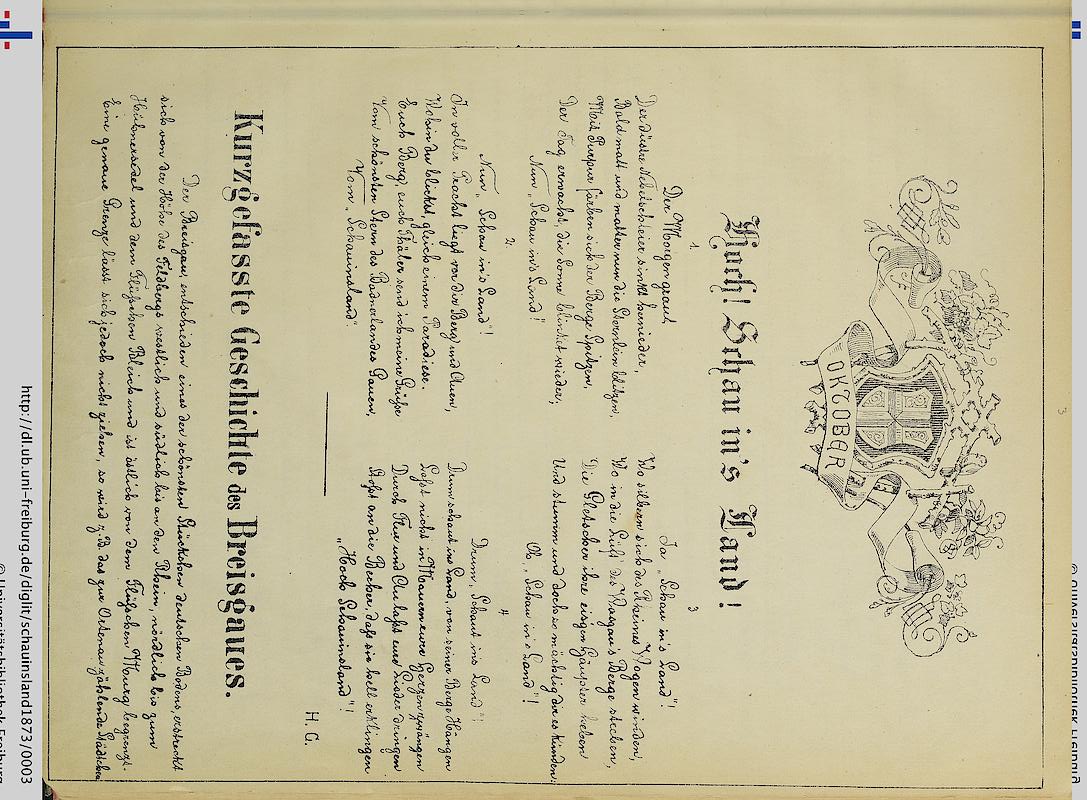 3
OKTOBER
Hoch! Schau in's Land!
1.
Der Morgen graut,
Der düstre Nebelschleier sinkt hernieder,
Bald matt und matter nun die Sternlein blitzen,
Mit Purpur färben sich der Berge Spitzen,
Der Tag erwacht, die Sonne blinket wieder,
Nun „Schau in's Land!
2.
Nun „Schau in's Land"!
In voller Pracht liegt vor dir Berg und Auen,
Wohin du blickst, gleich einem Paradiese.
Euch Berg, euch Thäler send ich meine Grüße
Vom schönsten Stern des Badnerlandes Gauen,
Vom „Schauinsland".
3
Ja „Schau in's Land"!
Wo silbern sich des Rheines Wogen winden,
Wo in die Luft des Wasgau's Berge streben,
Die Gletscher ihre eisgen Häupter heben
Und stumm und doch so mächtig dir es künden:
Oh „Schau in's Land"!
4
Drum „Schaut ins Land"!
Drum schaut in's Land, von seiner Berge Hängen
Laßt nicht in Mauern eure Herzen zwängen
Durch Flur und Au laßt eure Lieder dringen
Stoßt an die Becher, daß sie hell erklingen
„Hoch Schauinsland"!
H. G.
Kurzgefasste Geschichte des Breisgaues.
Der Breisgau, entschieden eines der schönsten Stückchen deutschen Bodens erstreckt
sich von der Höhe des Feldbergs westlich und südlich bis an den Rhein, nördlich bis zum
Hühnersedel und dem Flüßchen Bleich und ist östlich von dem Flüßchen Murg begrenzt.
Eine genaue Grenze lässt sich jedoch nicht ziehen, so wird z.B. das zur Ortenau zählende Städtchen
http://dl.ub.uni-freiburg.de/diglit/schauinsland1873/0003
© Universitätsbibliothek Freiburg